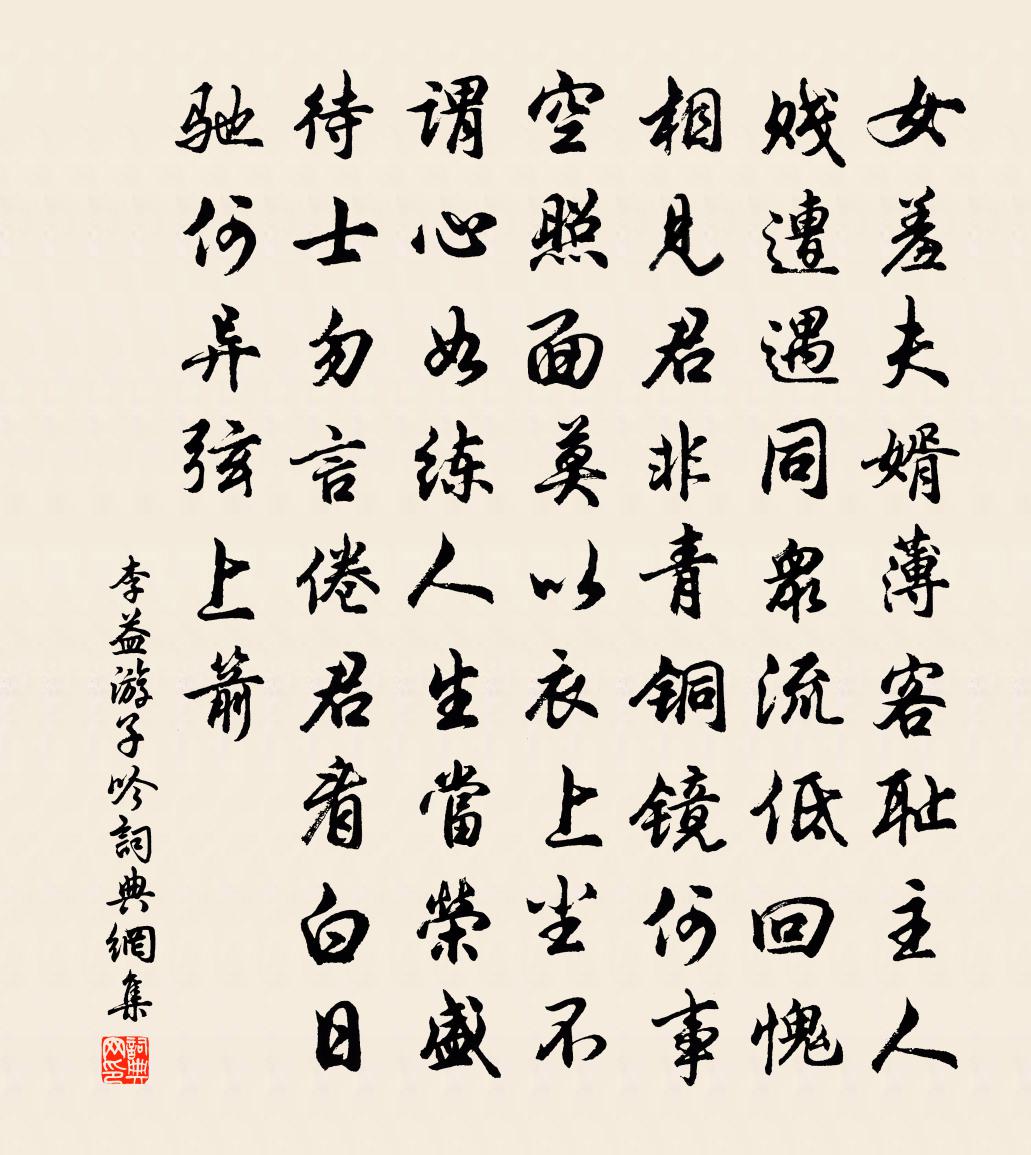 女羞夫婿薄客耻主人
贱遭遇同眾流低回愧
相見君非青铜镜何事
空照面莫以衣上尘不
謂心如练人生當榮盛
待士勿言倦君看白日
驰何异弦上箭
李益游子吟詞典網集
詞典网印